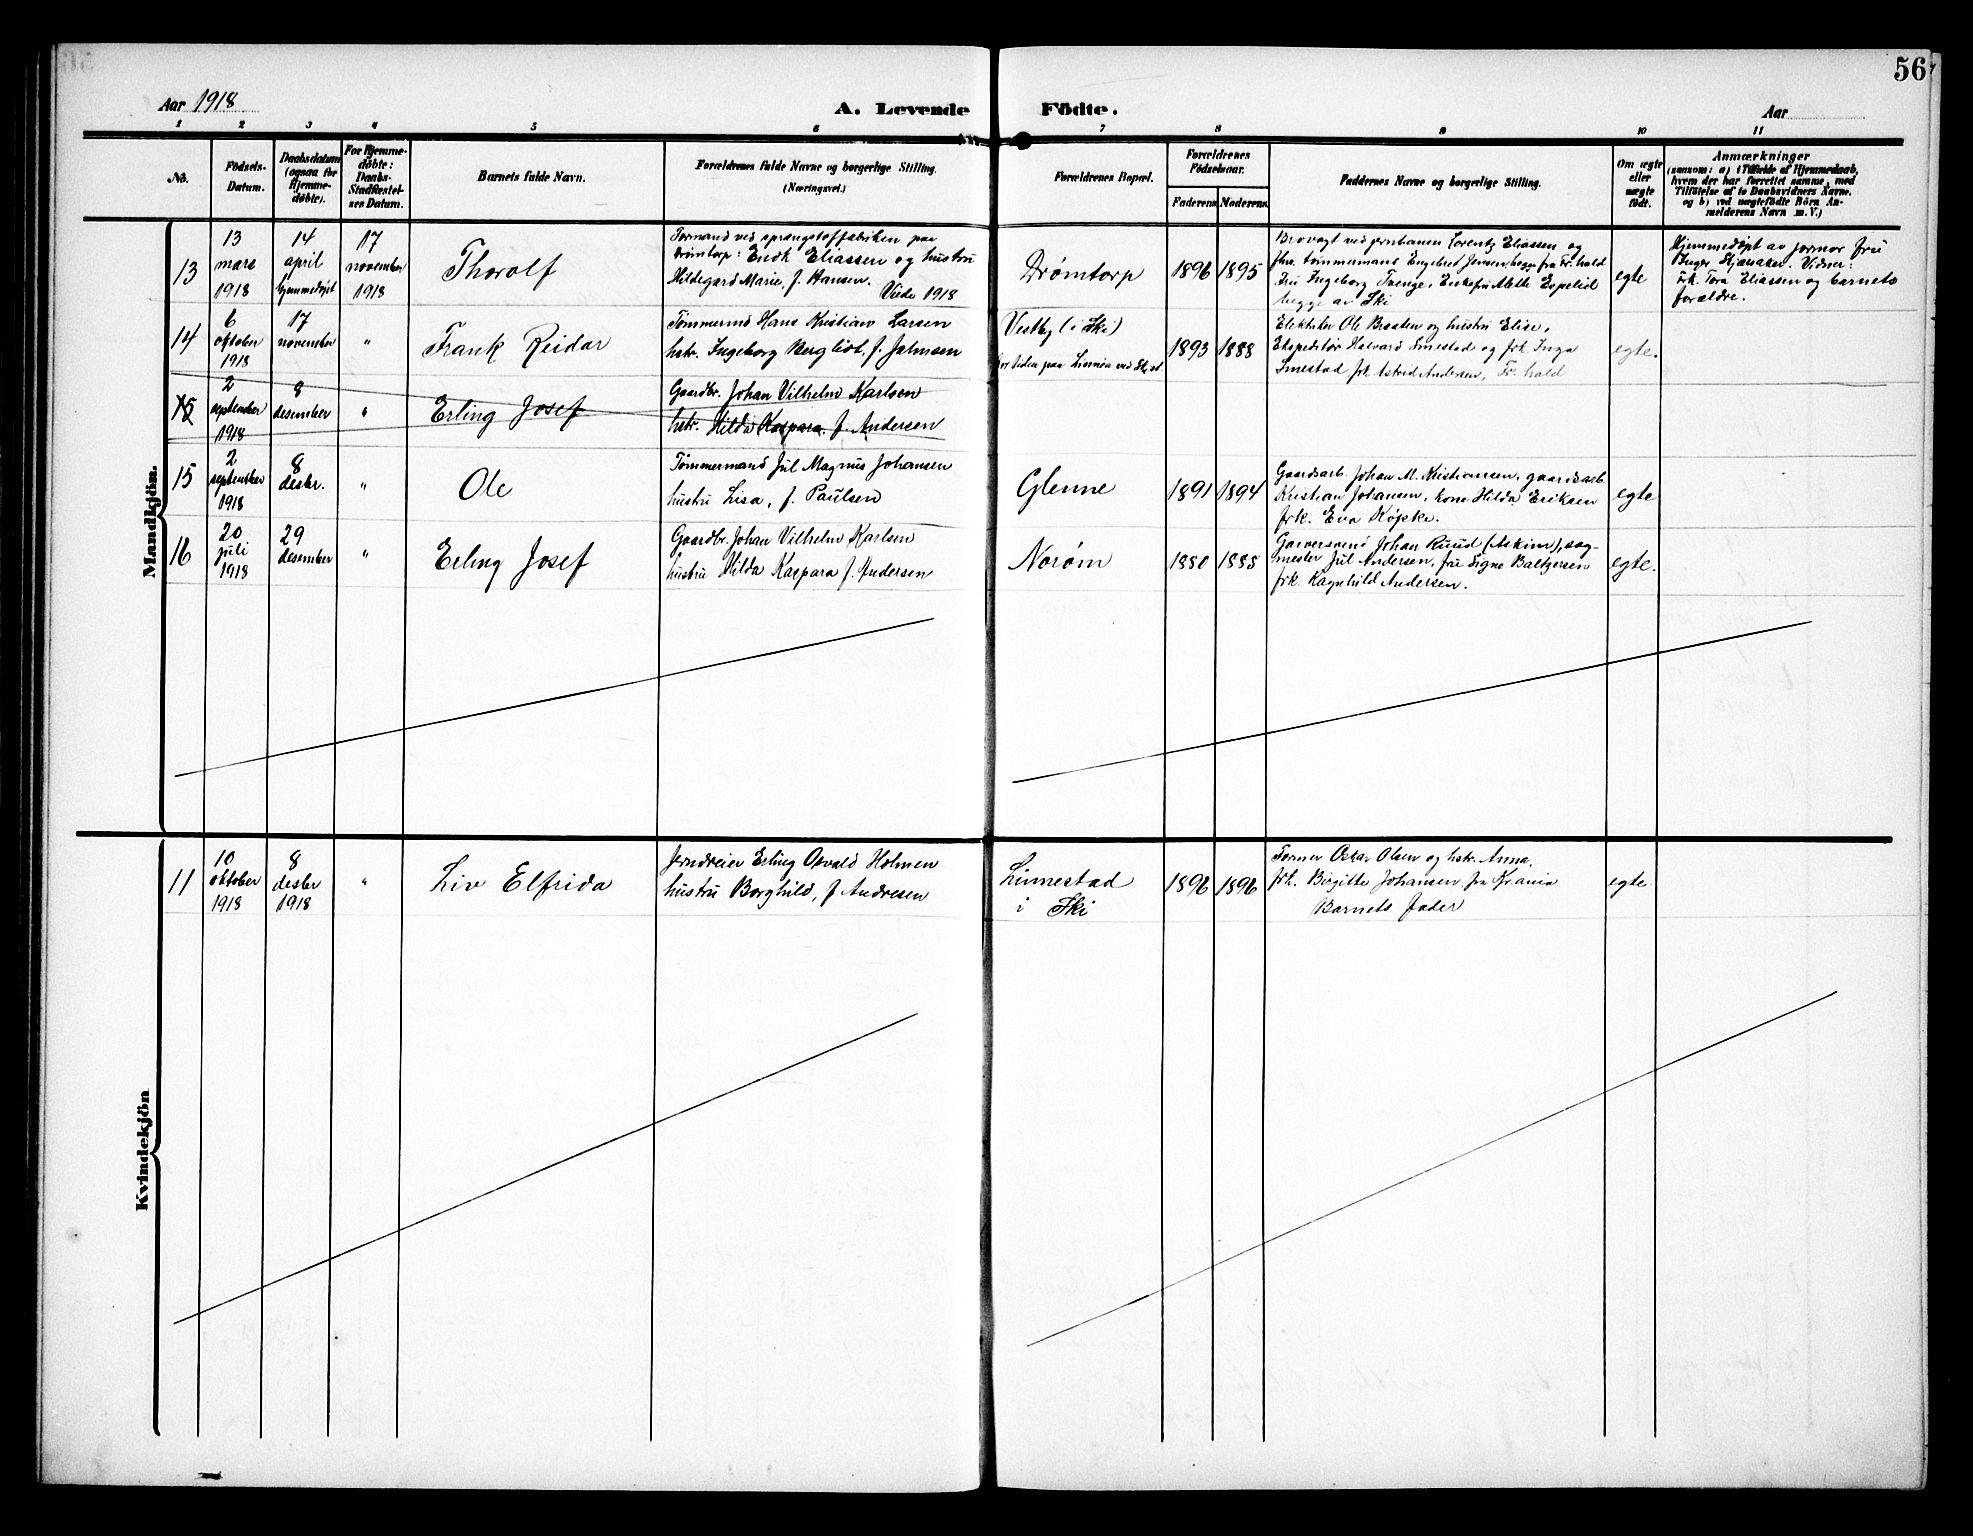 56
Aar 1918
A. Levende
Födte.
Aar
1 2 3 4 5 6 7 8 9 10 11
No.
Födsels-
Datum.
Daabsdatum
(ogsaa for
Hjemme-
døbte).
For Hjemme-
døbte:
Daabs-
Stadfæstel-
ses Datum.
Barnets fulde Navn.
Forældrenes fulde Navne og borgerlige Stilling.
(Næringsvei.)
Forældrenes Bopæl.
Forældrenes
Födselsaar.
Faderens Moderens
Faddernes Navne og borgerlige Stilling.
Om ægte
eller
uægte
födt.
Anmærkninger
(saasom: a) i Tilfælde af Hjemmedaab,
hvem der har forrettet samme, med
Tilföielse af to Daabsvidners Navne,
og b) ved uægtefödte Börn An-
melderens Navn m. V.)
Mandkjön.
13
13
mars
1918
14
april
hjemmedøpt
17
november
1918
Thorolf
Formand ved sprængstoffabriken paa
Drømtorp: Endk Eliassen og hustru
Hildegard Marie, f. Hansen.
Viede 1918
Drømtorp
1896 1895
Brovagt ved jernbanen Lorentz Eliassen og
fhv. tømmermand Engebret Jensen, begge fra Fr.hald
Fru Ingeborg Trenge, Enkefru Alette Espelid
begge av Ski
egte
Hjemmedøpt av jormor fru
Inger Skjønaker. Vidner:
frk. Tora Eliassen og barnets
forældre.
14
6
oktober
1918
17
november
"
Frank Reidar
Tømmermd Hans Kristian Larsen
hstr. Ingeborg Bergliot, f. Jahnsen
Vestby (i Ski)
1893 1888
Elektriker Ole Braaten og hustru Elise,
Ekspeditør Halvard Smestad og frk. Inga
Smestad frk Astrid Andersen, Fr. hald
egte.
15
2
september
1918
8
desember
"
Erling Josef
Gaardbr. Johan Vilhelm Karlsen
hstr. Hilda Kaspara, f. Andersen
15
2
september
1918
8
desbr.
"
Ole
Tømmermand Jul Magnus Johansen
hustru Lisa, f. Paulsen
Glenne
1891 1894
Gaardsarb. Johan M. Kristiansen, gaardsarb
Kristian Johansen, kone Hilda Eriksen
frk. Eva Köpke.
egte
16
20
juli
1918
29
desember
"
Erling Josef
Gaardbr. Johan Vilhelm Karlsen
hustru Hilda Kaspara f. Andersen
Norøm
1880 1885
Garversvend Johan Ruud (Askim), sag-
mester Jul Andersen, fru Signe Baltzersen
frk. Ragnhild Andersen.
egte.
Kvindekjön
11
10
oktober
1918
8
desbr
1918
"
Liv Elfrida
Jerndreier Erling Osvald Holmen
hustru Borghild, f Andresen
Linnestad
i Ski
1896 1896
Former Oskar Olsen og hstr. Anna,
frk. Birgitte Johansen fra Krania
Barnets fader
egte